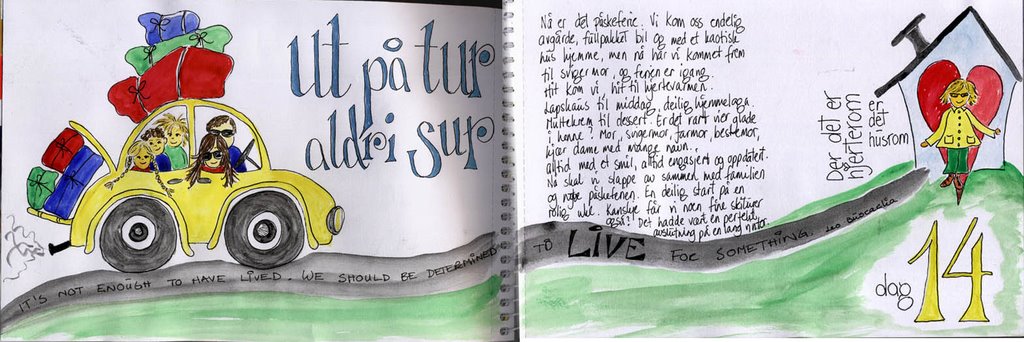 Ut på tur
aldri sur
IT'S NOT ENOUGH TO HAVE LIVED. WE SHOULD BE DETERMINED
Nå er det påskeferie. Vi kom oss endelig
avgårde, fullpakket bil og med et kaotisk
hus hjemme, men nå har vi kommet frem
til svigermor, og ferien er igang.
Hit kom vi, hit til hjertevarmen.
Lapskaus til middag, deilig hjemmelaga.
Multekrem til dessert. Er det rart vi er glade
i henne? Mor, svigermor, farmor, bestemor,
kjær dame med mange navn.
Alltid med et smil, alltid engasjert og oppdatert.
Nå skal vi slappe av sammen med familien
og nyte påskeferien. En deilig start på en
rolig uke. Kanskje får vi noen fine skiturer
også? Det hadde vært en perfekt
avslutning på en lang vinter.
Der det er
hjerterom
er det
husrom
TO LIVE FOR SOMETHING...
dag 14